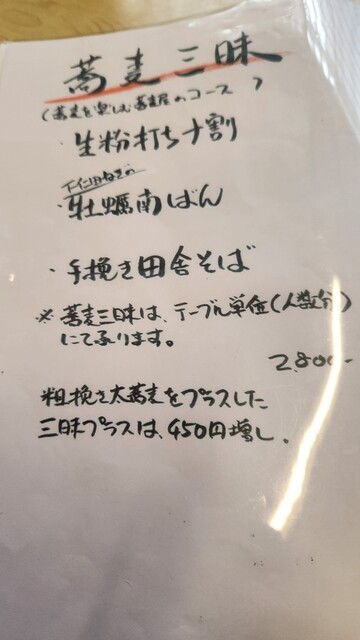 蕎麦三昧
(蕎麦を楽しむ蕎麦屋のコース)
・生粉打ち十割
下仁田ねぎの
・牡蠣南ばん
・手挽き田舎そば
※ 蕎麦三昧は、テーブル単位(人数分)
にて承ります。
2,800-
粗挽き太蕎麦をプラスした
三昧プラスは、450円増し。